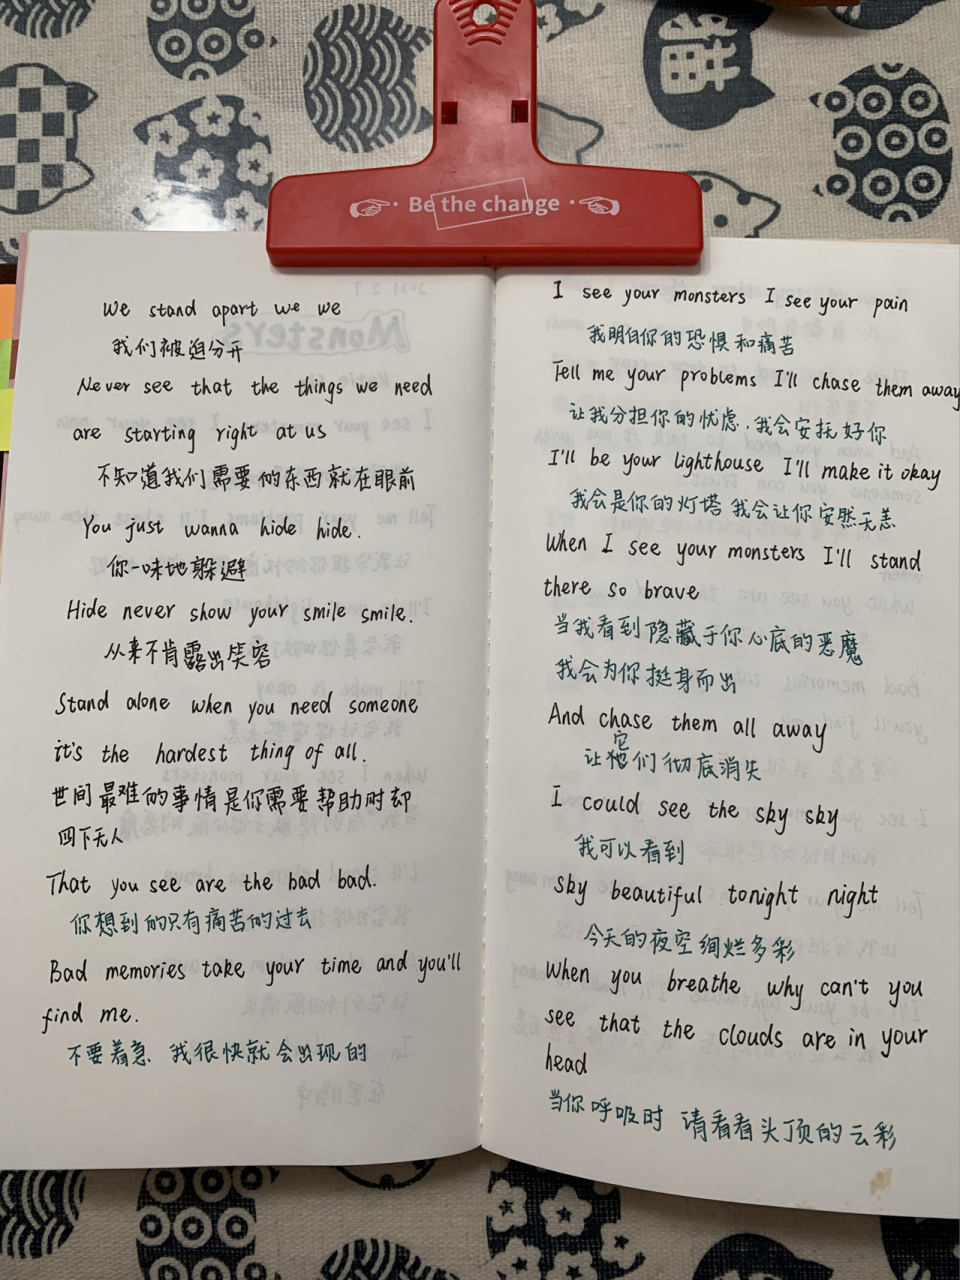 猫
Be the change
We stand apart we we
我们被迫分开
Never see that the things we need
are starting right at us
不知道我们需要的东西就在眼前
You just wanna hide hide.
你一味地躲避
Hide never show your smile smile.
从来不肯露出笑容
Stand alone when you need someone
it's the hardest thing of all.
世间最难的事情是你需要帮助时却
四下无人
That you see are the bad bad.
你想到的只有痛苦的过去
Bad memories take your time and you'll
find me.
不要着急 我很快就会出现的
I see your monsters I see your pain
我明白你的恐惧和痛苦
Tell me your problems I'll chase them away
让我分担你的忧虑.我会安抚好你
I'll be your lighthouse I'll make it okay
我会是你的灯塔 我会让你安然无恙
When I see your monsters I'll stand
there so brave
当我看到隐藏于你心底的恶魔
我会为你挺身而出
And chase them all away
让它们彻底消失
I could see the sky sky
我可以看到
sky beautiful tonight night
今天的夜空绚烂多彩
When you breathe why can't you
see that the clouds are in your
head
当你呼吸时 请看看头顶的云彩